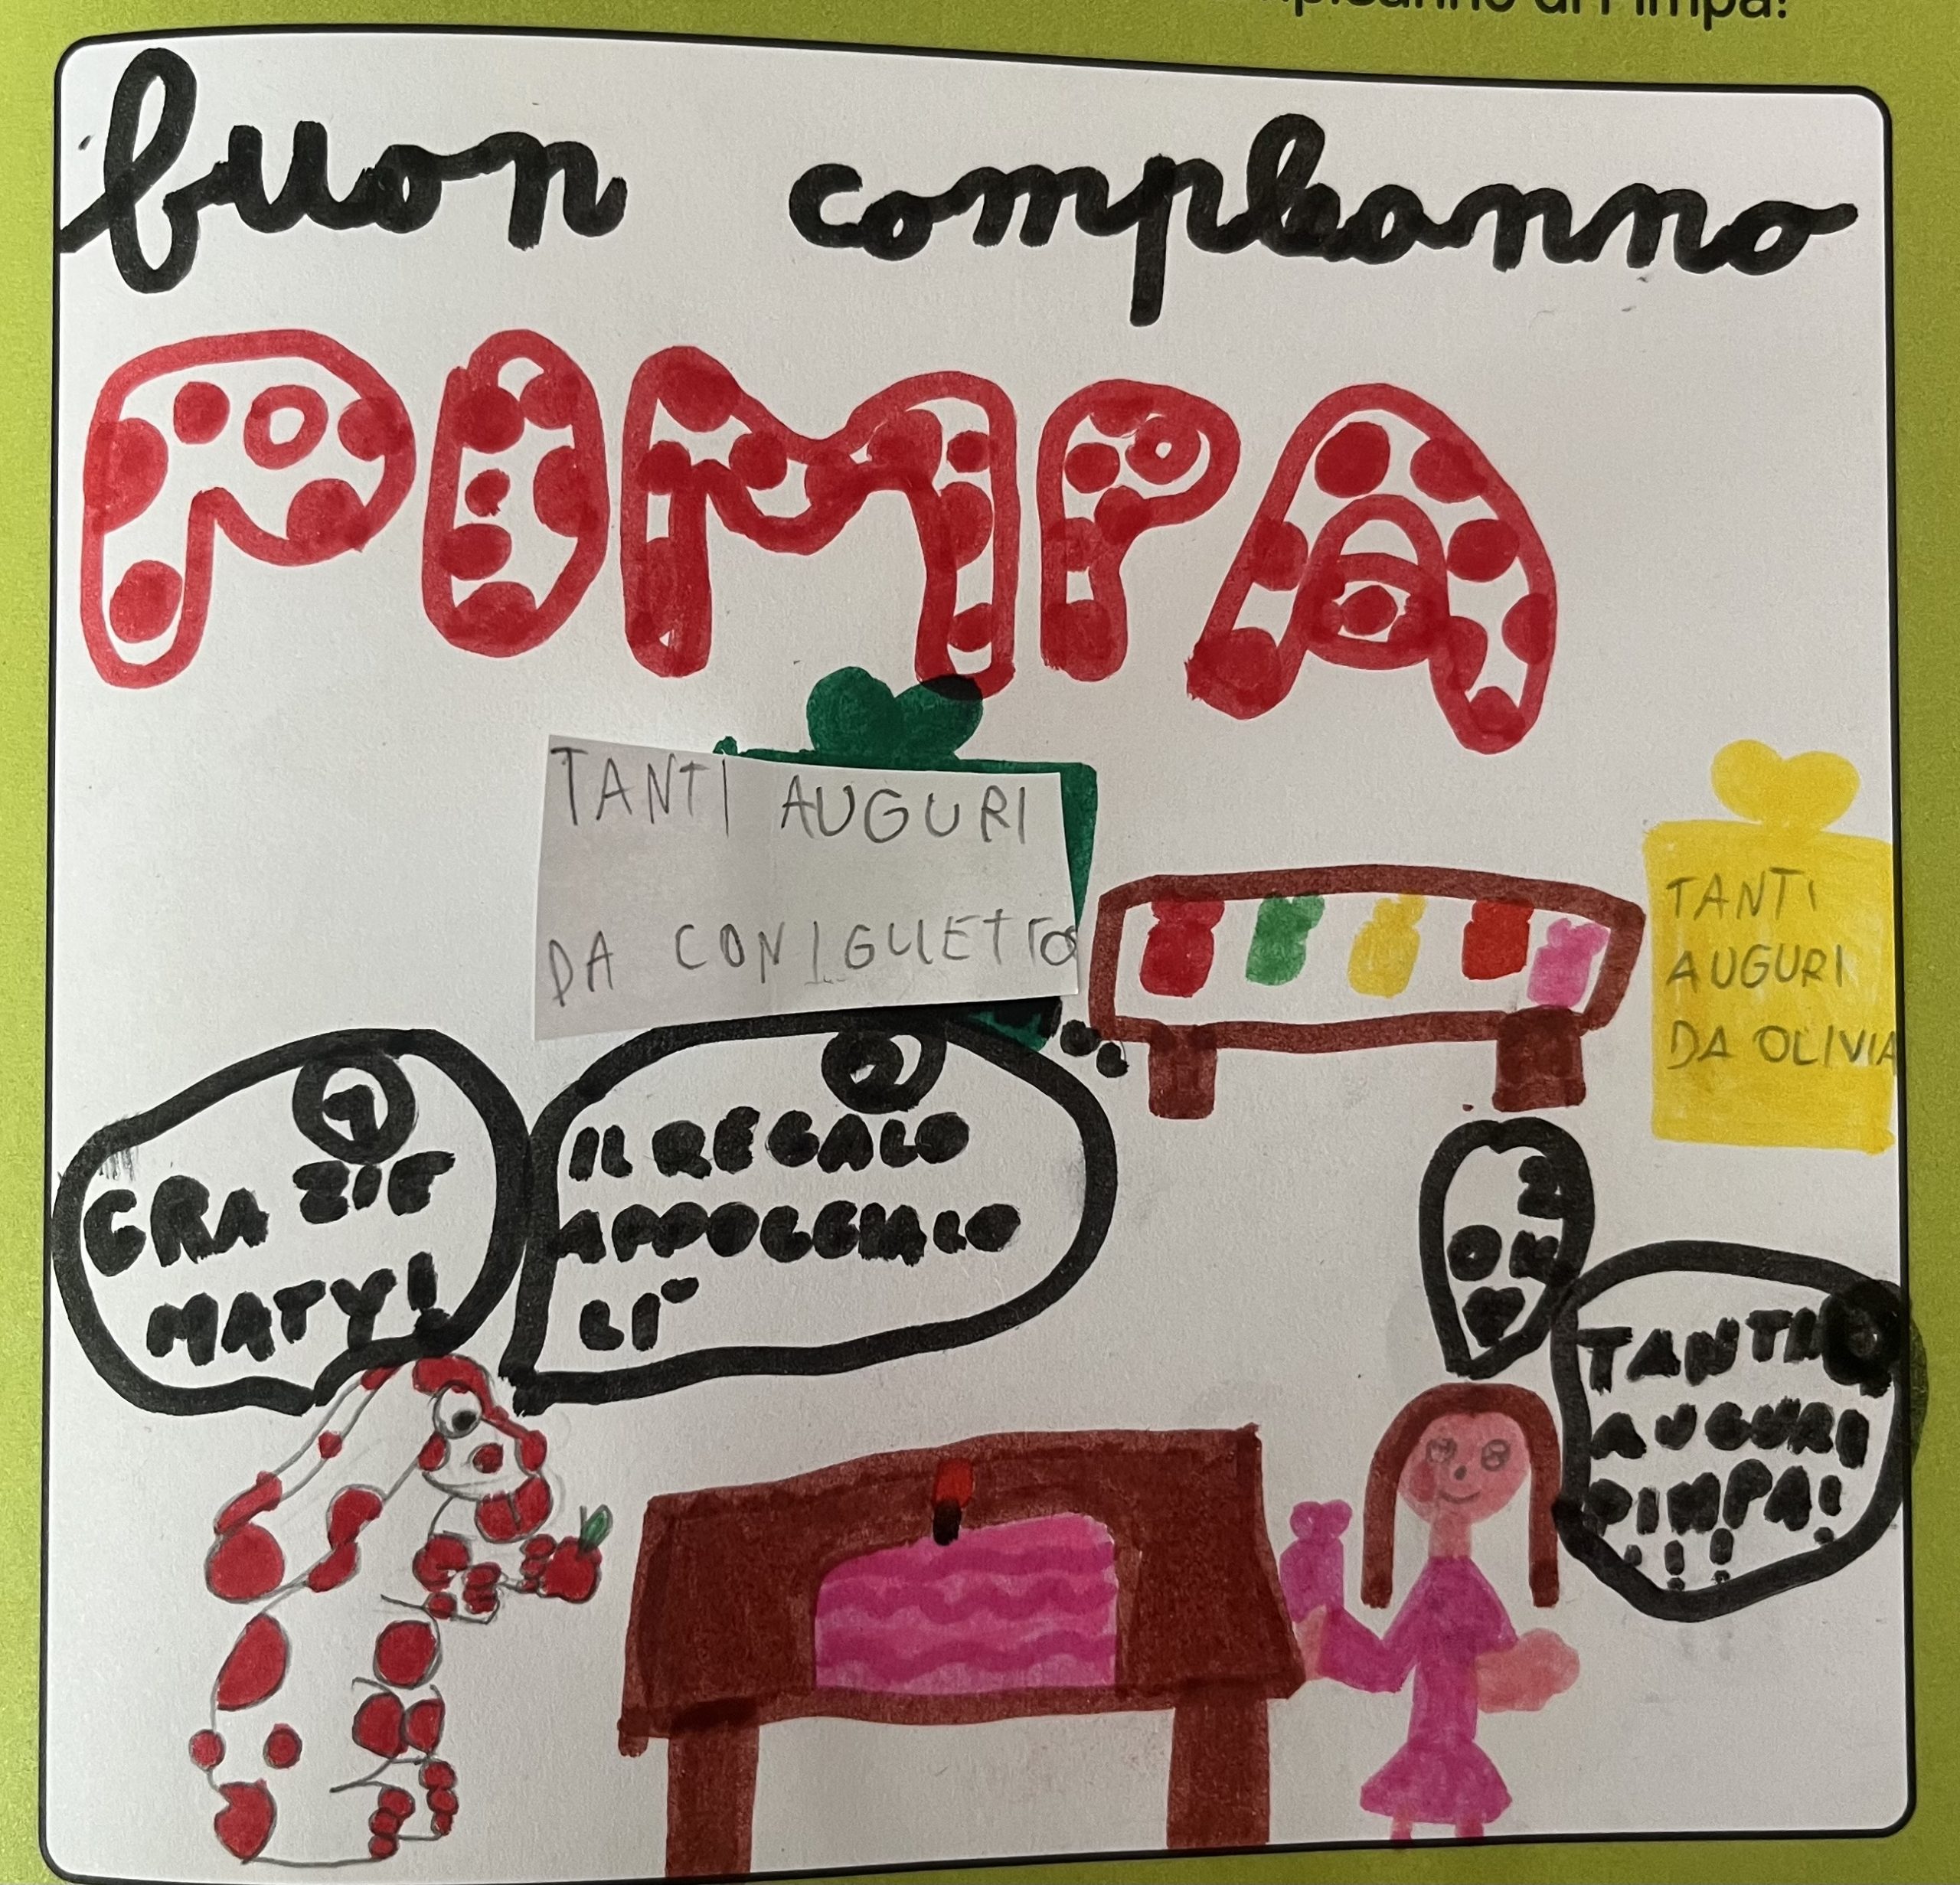 di Pimpa!
buon compleanno
PIMPA
TANTI AUGURI
DA CONIGLIETTO
TANTI
AUGURI
DA OLIVIA
1
GRAZIE
MATY!
2
IL REGALO
APPOGGIALO
LÌ
2
OK
TANTI
AUGURI
PIMPA!
!!!